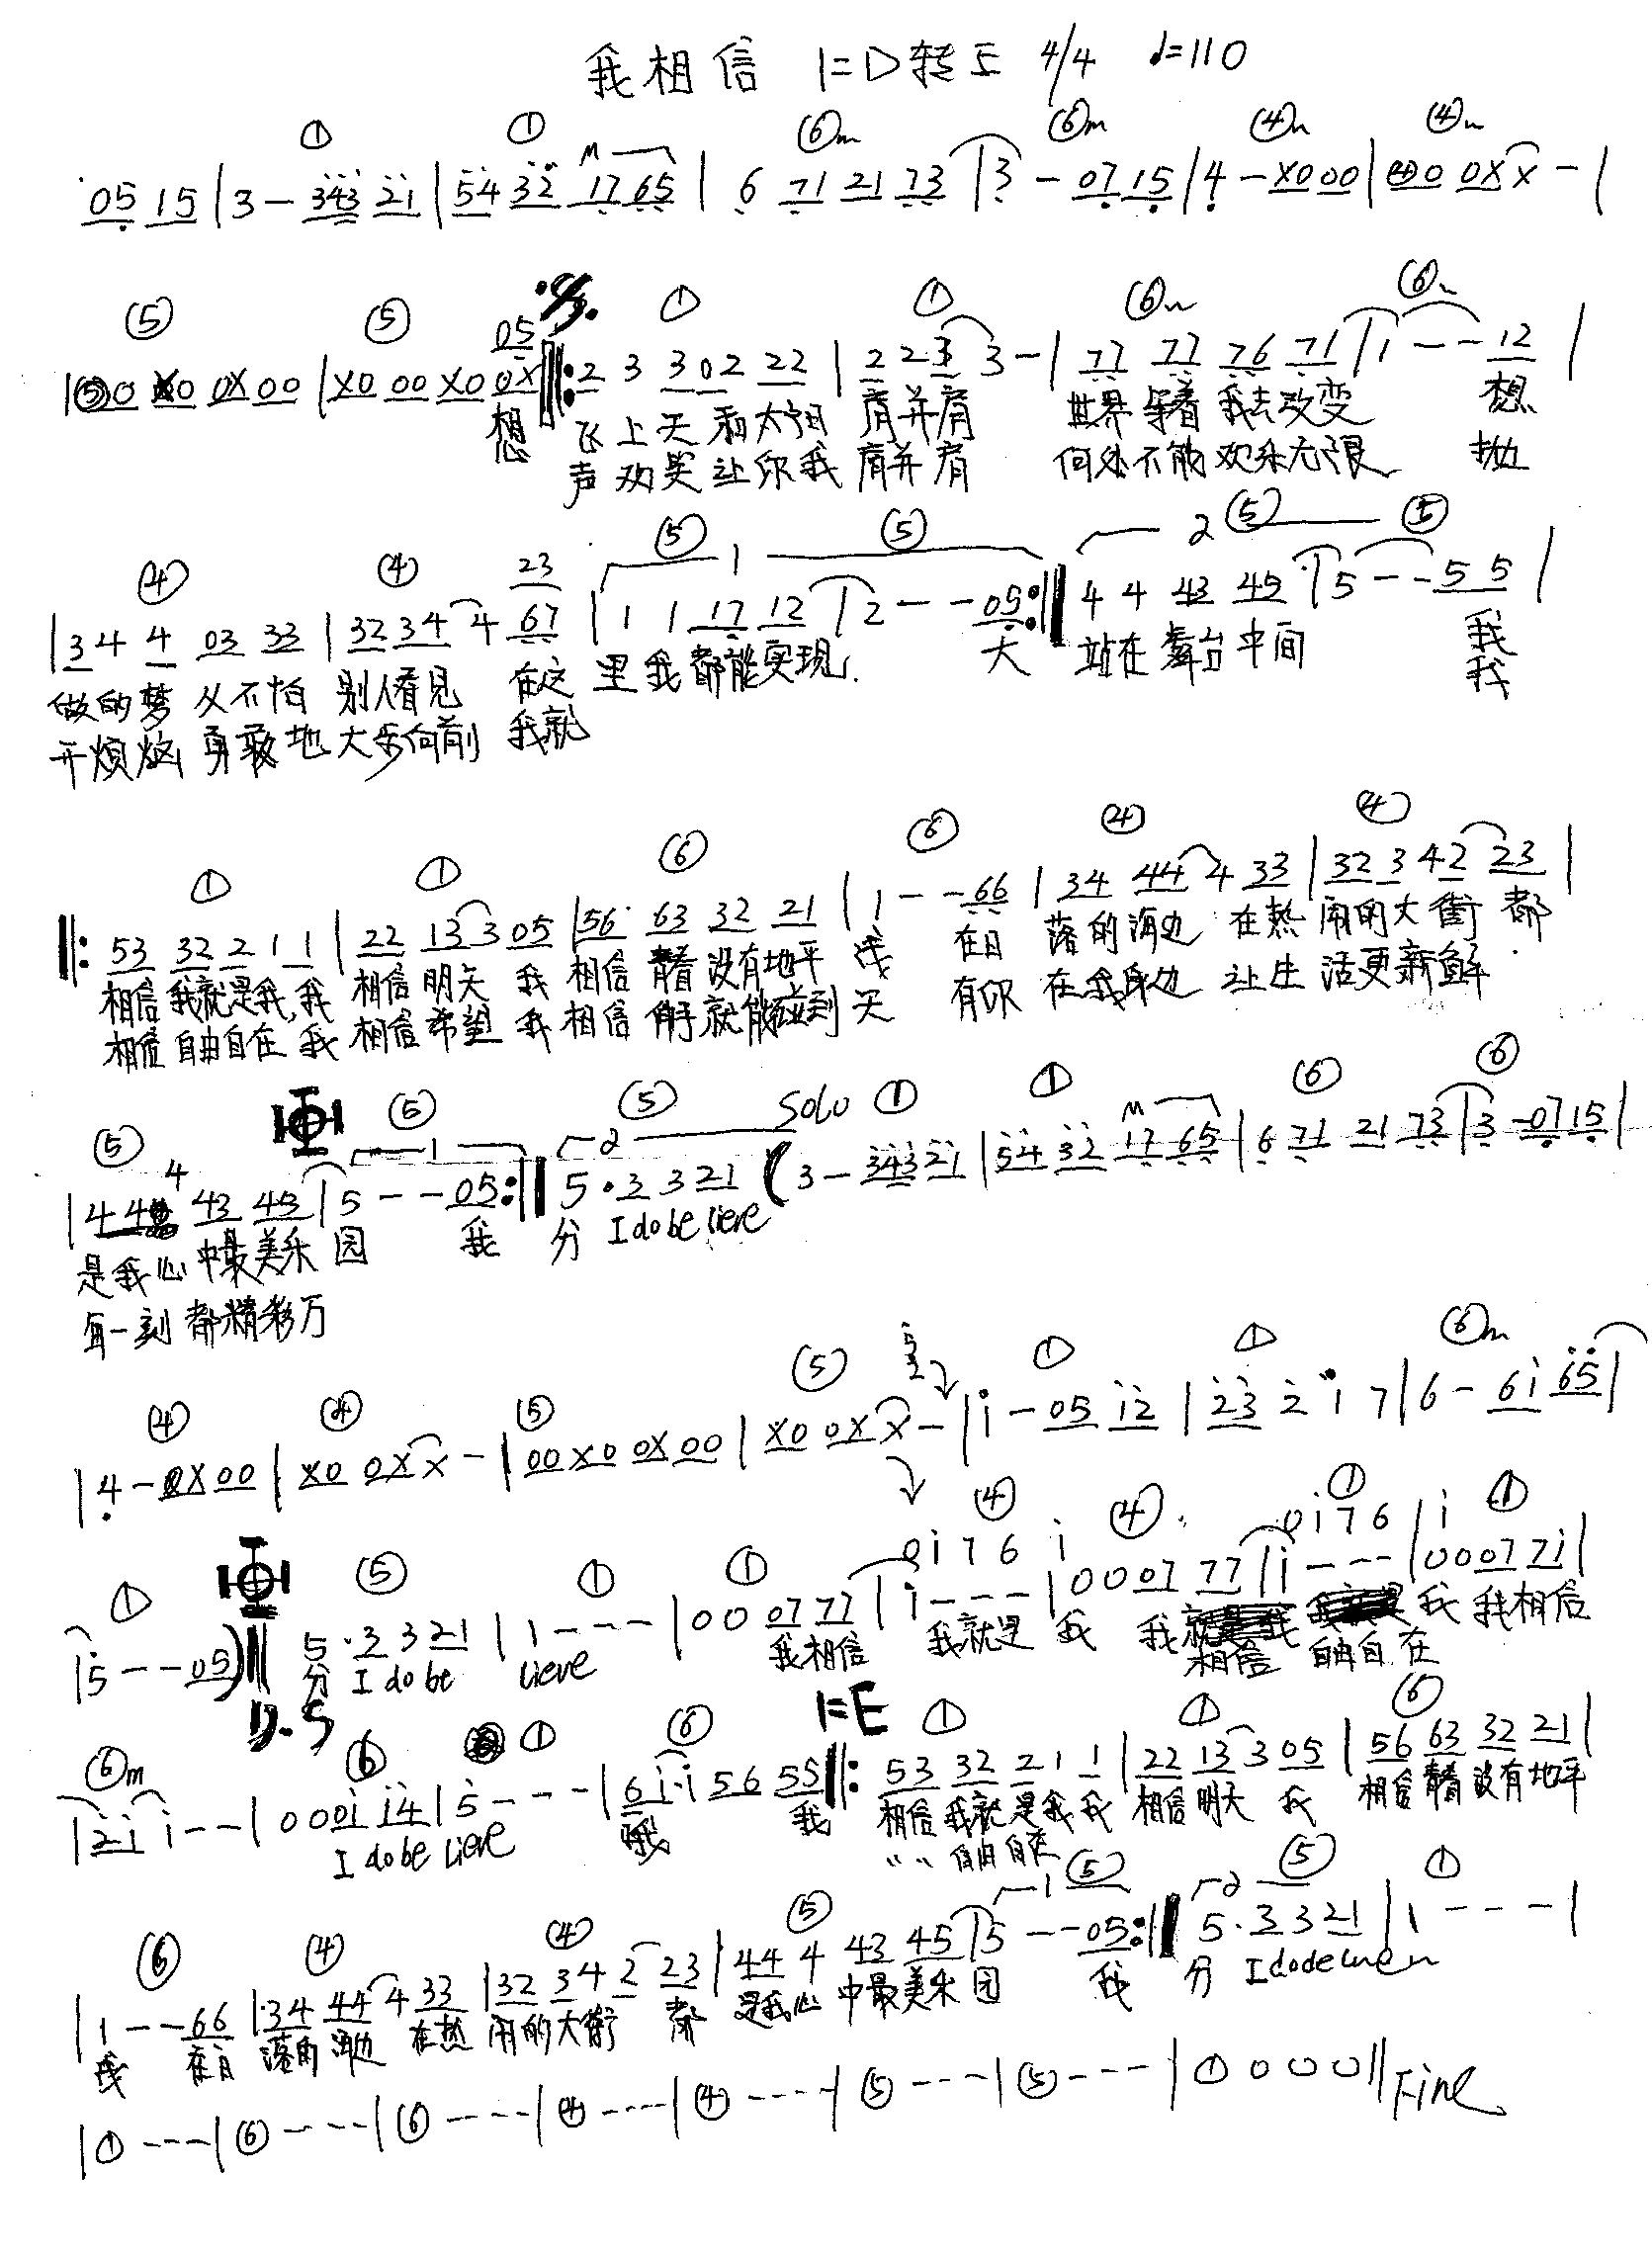 我相信 1=D转E 4/4 ♩=110
① ① ⑥m ⑥m ④ ④
05 15 | 3 - 343 21 | 54 32 17 65 | 6 71 21 73 | 3 - 07 15 | 4 - X0 00 | ④0 0X X - |
⑤ ⑤ 05 ① ① ⑥ ⑥
| ⑤0 X0 0X 00 | X0 00 X0 0X ‖: 2 3 3 02 22 | 2 2 3 3 - | 77 77 76 71 | 1 - - 12 |
想 飞上天和太阳 肩并肩 世界等着我去改变 想
声欢笑让你我 肩并肩 何处不能欢乐无限 抛
④ ④ 23 ⑤ 1 ⑤ 2 ⑤ ⑤
| 3 4 4 03 33 | 32 34 4 67 | 1 1 17 12 | 2 - - 05 :‖ 4 4 43 45 | 5 - - 5 5 |
做的梦 从不怕 别人看见 在这 里我都能实现 大 站在舞台中间 我
开烦恼 勇敢地大步向前 我就 我
① ① ⑥ ⑥ ④ ④
‖: 53 32 2 1 1 | 22 13 3 05 | 56 63 32 21 | 1 - - 66 | 34 44 4 33 | 32 3 4 2 23 |
相信我就是我,我 相信明天 我 相信青春没有地平 线 在日 落的海边 在热 闹的大街 都
相信自由自在 我 相信希望 我 相信伸手就能碰到 天 有你 在我身边 让生 活更新鲜
⑤ ⑤ 1 ⑤ 2 Solo ① ① ⑥ ⑥
| 44 4 43 45 | 5 - - 05 :‖ 5 . 3 3 21 ( 3 - 343 21 | 54 32 17 65 | 6 71 21 73 | 3 - 07 15 |
是我心中最美乐 园 我 分 I do be lieve
每一刻都精彩万
④ ④ ⑤ ⑤ ① ① ⑥m
| 4 - 0X 00 | X0 0X X - | 00 X0 0X 00 | X0 0X X - | 1 - 05 12 | 23 2 1 7 | 6 - 61 65 |
① ⑤ ① ① 0 1 7 6 1 ④ ④ 0 1 7 6 ① 1 ①
| 5 - - 05 ) ‖ 5 . 3 3 21 | 1 - - - | 0 0 07 77 | 1 - - - | 0 0 07 77 | 1 - - - | 0 0 07 71 |
分 I do be lieve 我相信 我就是 我 我相信 自由自在 我 我相信
D.S
⑥m ⑥ ① ⑥ 1=E ① ① ⑥
| 21 1 - - | 0 0 01 14 | 5 - - - | 61 1 56 55 ‖: 53 32 2 1 1 | 22 13 3 05 | 56 63 32 21 |
I do be lieve 哦 我 相信我就是我我 相信明天 我 相信青春没有地平
" " 自由自在
⑥ ④ ④ ⑤ 1 ⑤ 2 ⑤ ①
| 1 - - 66 | 34 44 4 33 | 32 3 4 2 23 | 44 4 43 45 | 5 - - 05 :‖ 5 . 3 3 21 | 1 - - - |
线 在日 落的海边 在热 闹的大街 都 是我心中最美乐 园 我 分
| ① - - - | ⑥ - - - - | ⑥ - - - - | ④ - - - - | ④ - - - - | ⑤ - - - | ⑤ - - - | ① 0 0 0 ‖ Fine